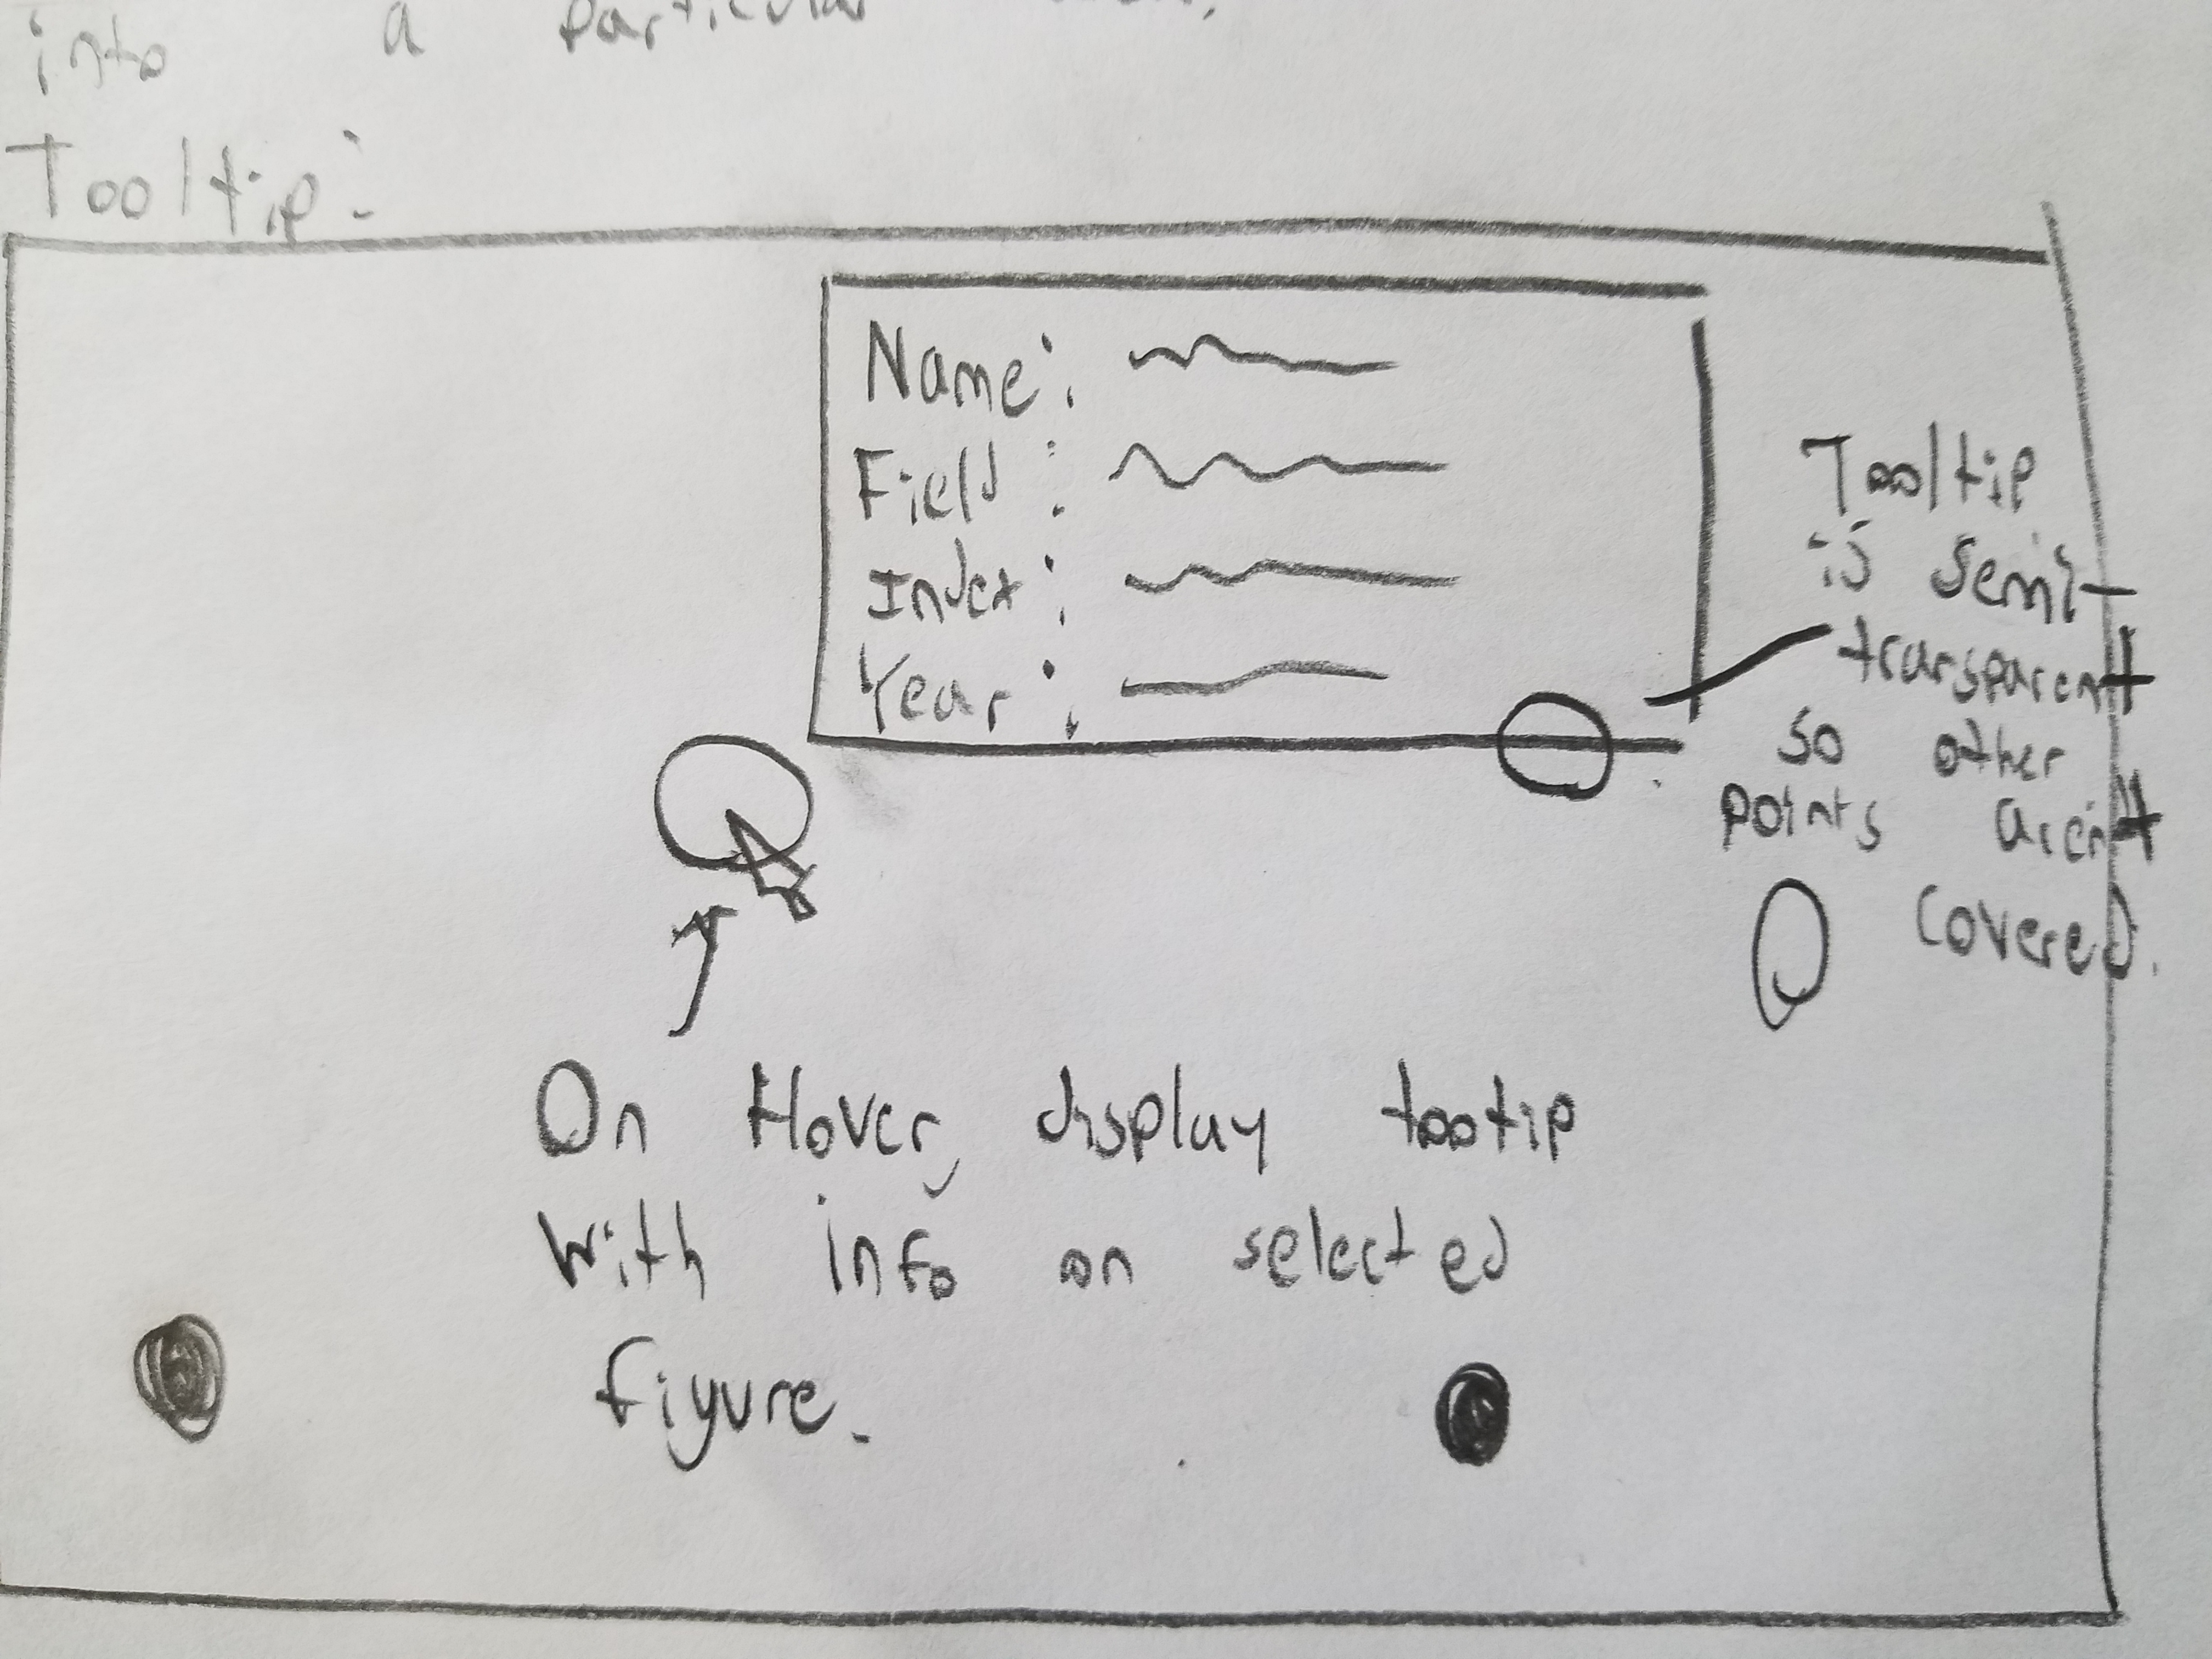 into a particular
Tooltip:
Name:
Field:
Index:
Year:
Tooltip
is semi-
transparent
so other
points aren't
covered.
On Hover, display tootip
With info on selected
figure.